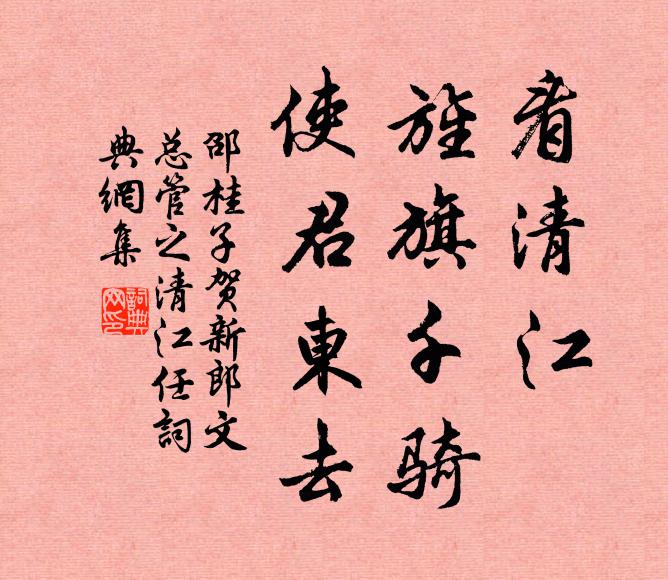 看清江
旌旗千骑
使君東去
邵桂子贺新郎文
总管之清江任詞
典網集
詞典
网印